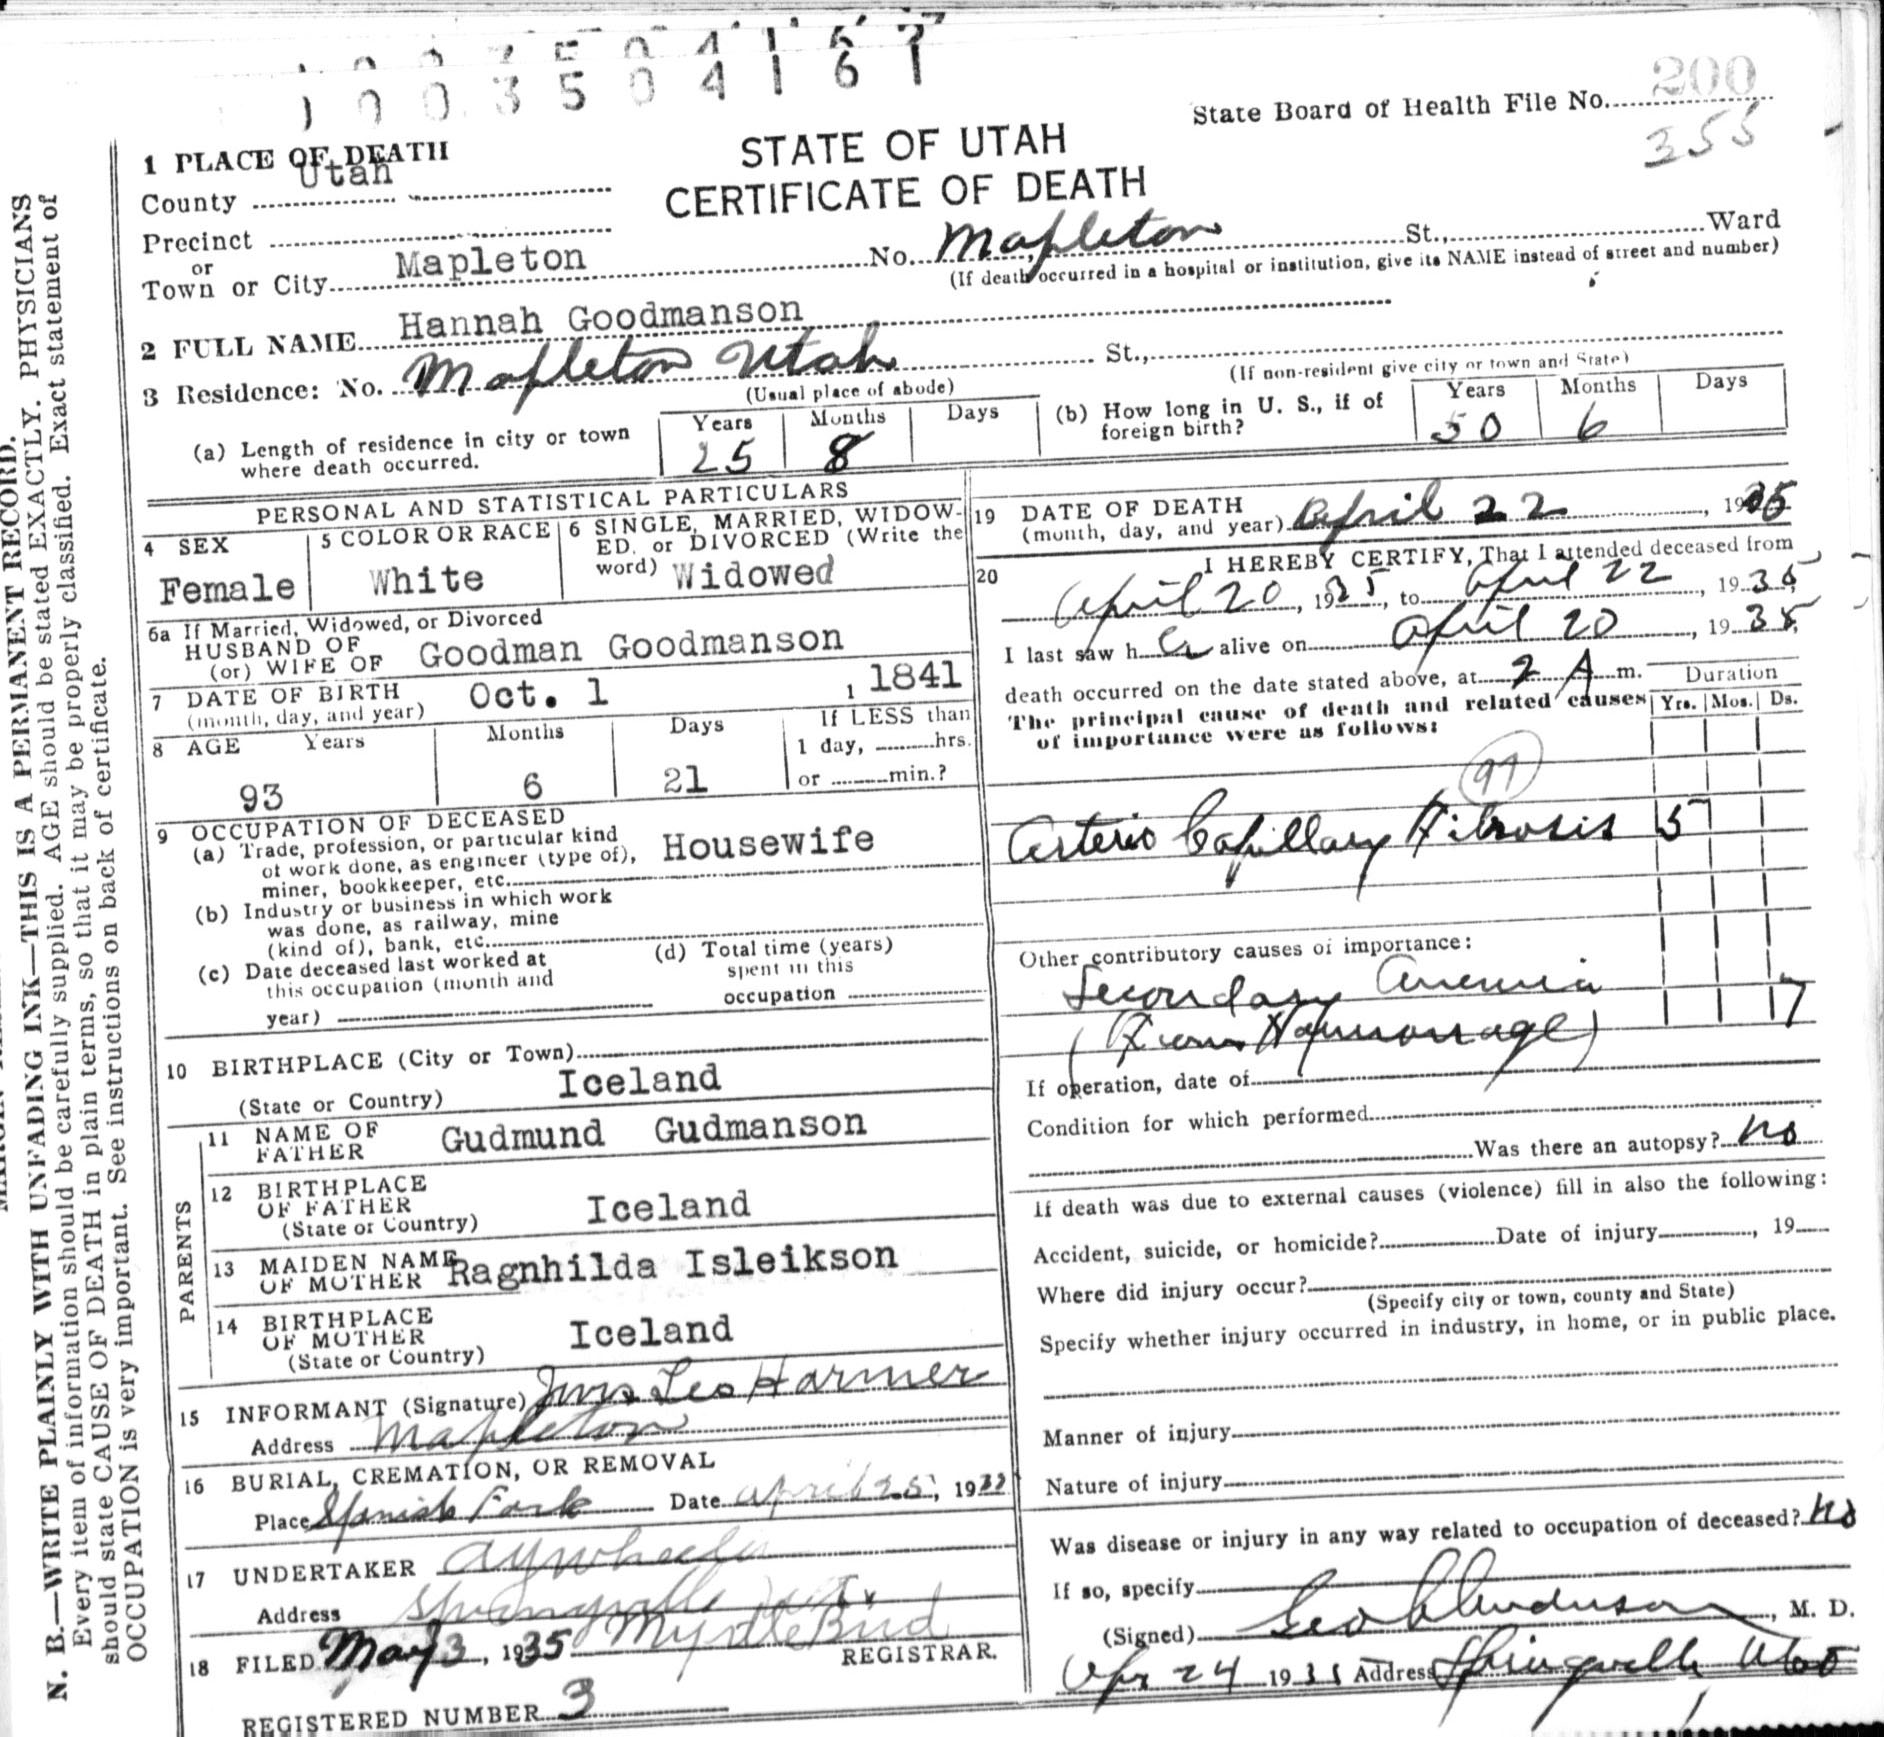 1003504161
State Board of Health File No. 200
355
STATE OF UTAH
CERTIFICATE OF DEATH
1 PLACE OF DEATH
County Utah
Precinct
or
Town or City Mapleton No. Mapleton St., Ward
(If death occurred in a hospital or institution, give its NAME instead of street and number)
2 FULL NAME Hannah Goodmanson
3 Residence: No. Mapleton Utah St.,
(Usual place of abode) (If non-resident give city or town and State)
(a) Length of residence in city or town where death occurred. Years 25 Months 8 Days
(b) How long in U. S., if of foreign birth? Years 50 Months 6 Days
PERSONAL AND STATISTICAL PARTICULARS
4 SEX
Female
5 COLOR OR RACE
White
6 SINGLE, MARRIED, WIDOW-
ED, or DIVORCED (Write the
word) Widowed
6a If Married, Widowed, or Divorced
HUSBAND OF
(or) WIFE OF Goodman Goodmanson
7 DATE OF BIRTH
(month, day, and year) Oct. 1 1 1841
8 AGE Years Months Days If LESS than
1 day, hrs.
93 6 21 or min.?
9 OCCUPATION OF DECEASED
(a) Trade, profession, or particular kind
of work done, as engineer (type of),
miner, bookkeeper, etc. Housewife
(b) Industry or business in which work
was done, as railway, mine
(kind of), bank, etc.
(c) Date deceased last worked at
this occupation (month and
year)
(d) Total time (years)
spent in this
occupation
10 BIRTHPLACE (City or Town)
(State or Country) Iceland
PARENTS
11 NAME OF
FATHER Gudmund Gudmanson
12 BIRTHPLACE
OF FATHER
(State or Country) Iceland
13 MAIDEN NAME
OF MOTHER Ragnhilda Isleikson
14 BIRTHPLACE
OF MOTHER
(State or Country) Iceland
15 INFORMANT (Signature) Mrs Leo Harmer
Address Mapleton
16 BURIAL, CREMATION, OR REMOVAL
Place Spanish Fork Date april 25, 19
17 UNDERTAKER A Y Wheeler
Address Springville
18 FILED May 3, 1935 Myrtle Bird
REGISTRAR.
REGISTERED NUMBER 3
19 DATE OF DEATH
(month, day, and year) April 22, 1935
20 I HEREBY CERTIFY, That I attended deceased from
April 20, 1935, to April 22, 1935,
I last saw her alive on April 20, 1935,
death occurred on the date stated above, at 2 A m.
The principal cause of death and related causes
of importance were as follows:
Duration
Yrs. Mos. Ds.
97
Arterio Capillary Fibrosis 5
Other contributory causes of importance:
Secondary Anemia
(From Haemorrage) 7
If operation, date of
Condition for which performed
Was there an autopsy? No
If death was due to external causes (violence) fill in also the following:
Accident, suicide, or homicide? Date of injury , 19
Where did injury occur?
(Specify city or town, county and State)
Specify whether injury occurred in industry, in home, or in public place.
Manner of injury
Nature of injury
Was disease or injury in any way related to occupation of deceased? No
If so, specify
(Signed) Geo Anderson, M. D.
Apr 24 1935 Address Springville Utah
N. B.—WRITE PLAINLY WITH UNFADING INK—THIS IS A PERMANENT RECORD.
Every item of information should be carefully supplied. AGE should be stated EXACTLY. PHYSICIANS
should state CAUSE OF DEATH in plain terms, so that it may be properly classified. Exact statement of
OCCUPATION is very important. See instructions on back of certificate.